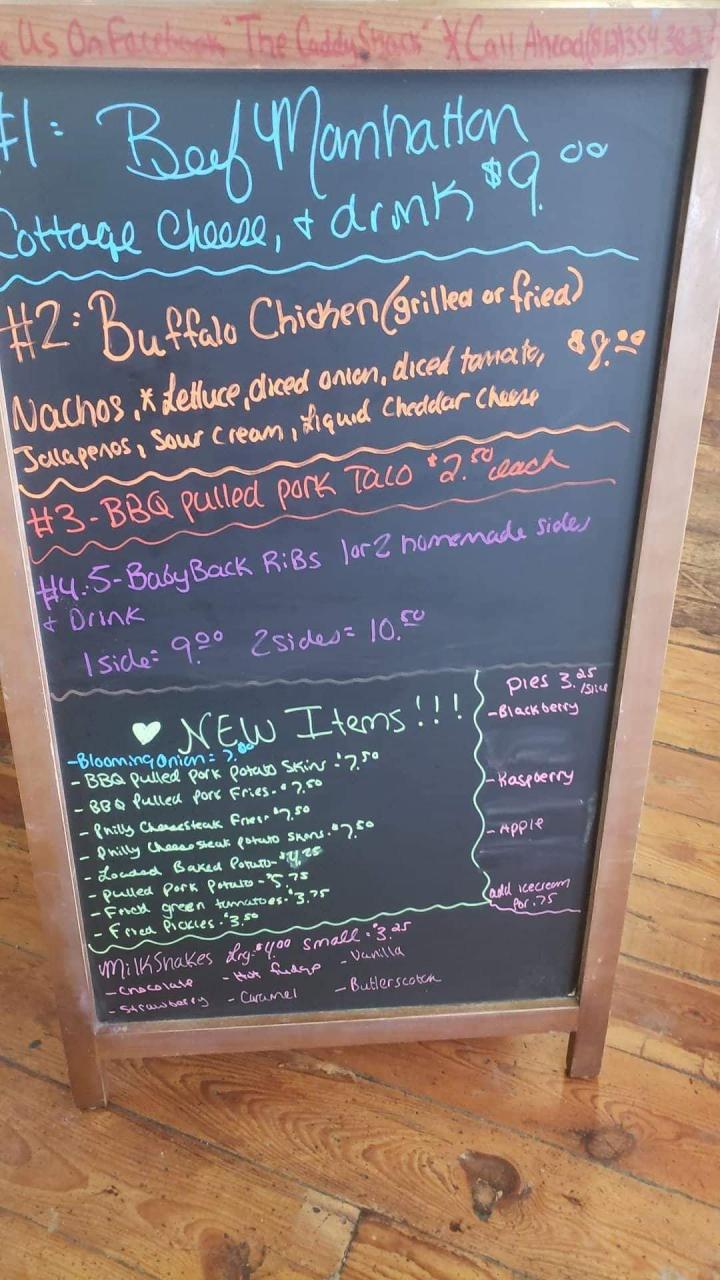 e Us On Facebook "The CaddyShack" * Call Ahead (812)354-382
#1: Beef Manhattan
Cottage Cheese, + drink $9.00
#2: Buffalo Chicken (grilled or fried)
Nachos, * Lettuce, diced onion, diced tomato, $8.00
Jalapenos, Sour Cream, Liquid Cheddar Cheese
#3 - BBQ pulled pork Taco $2.50 each
#4.5 - BabyBack Ribs 1 or 2 homemade sides
+ Drink
1 side: 9.00 2 sides = 10.50
NEW Items!!!
- Blooming Onion = 7.00
- BBQ pulled Pork Potato Skins - $7.50
- BBQ Pulled Pork Fries - $7.50
- Philly Cheesesteak Fries - $7.50
- Philly Cheese Steak potato Skins - $7.50
- Loaded Baked Potato - $4.25
- Pulled Pork Potato - $5.75
- Fried green tomatoes - $3.75
- Fried Pickles - $3.50
pies 3.25 /slice
- Blackberry
- Raspberry
- Apple
add icecream
for .75
MilkShakes Lrg: $4.00 Small - $3.25
- Chocolate - Hot fudge - Vanilla
- Strawberry - Caramel - Butterscotch